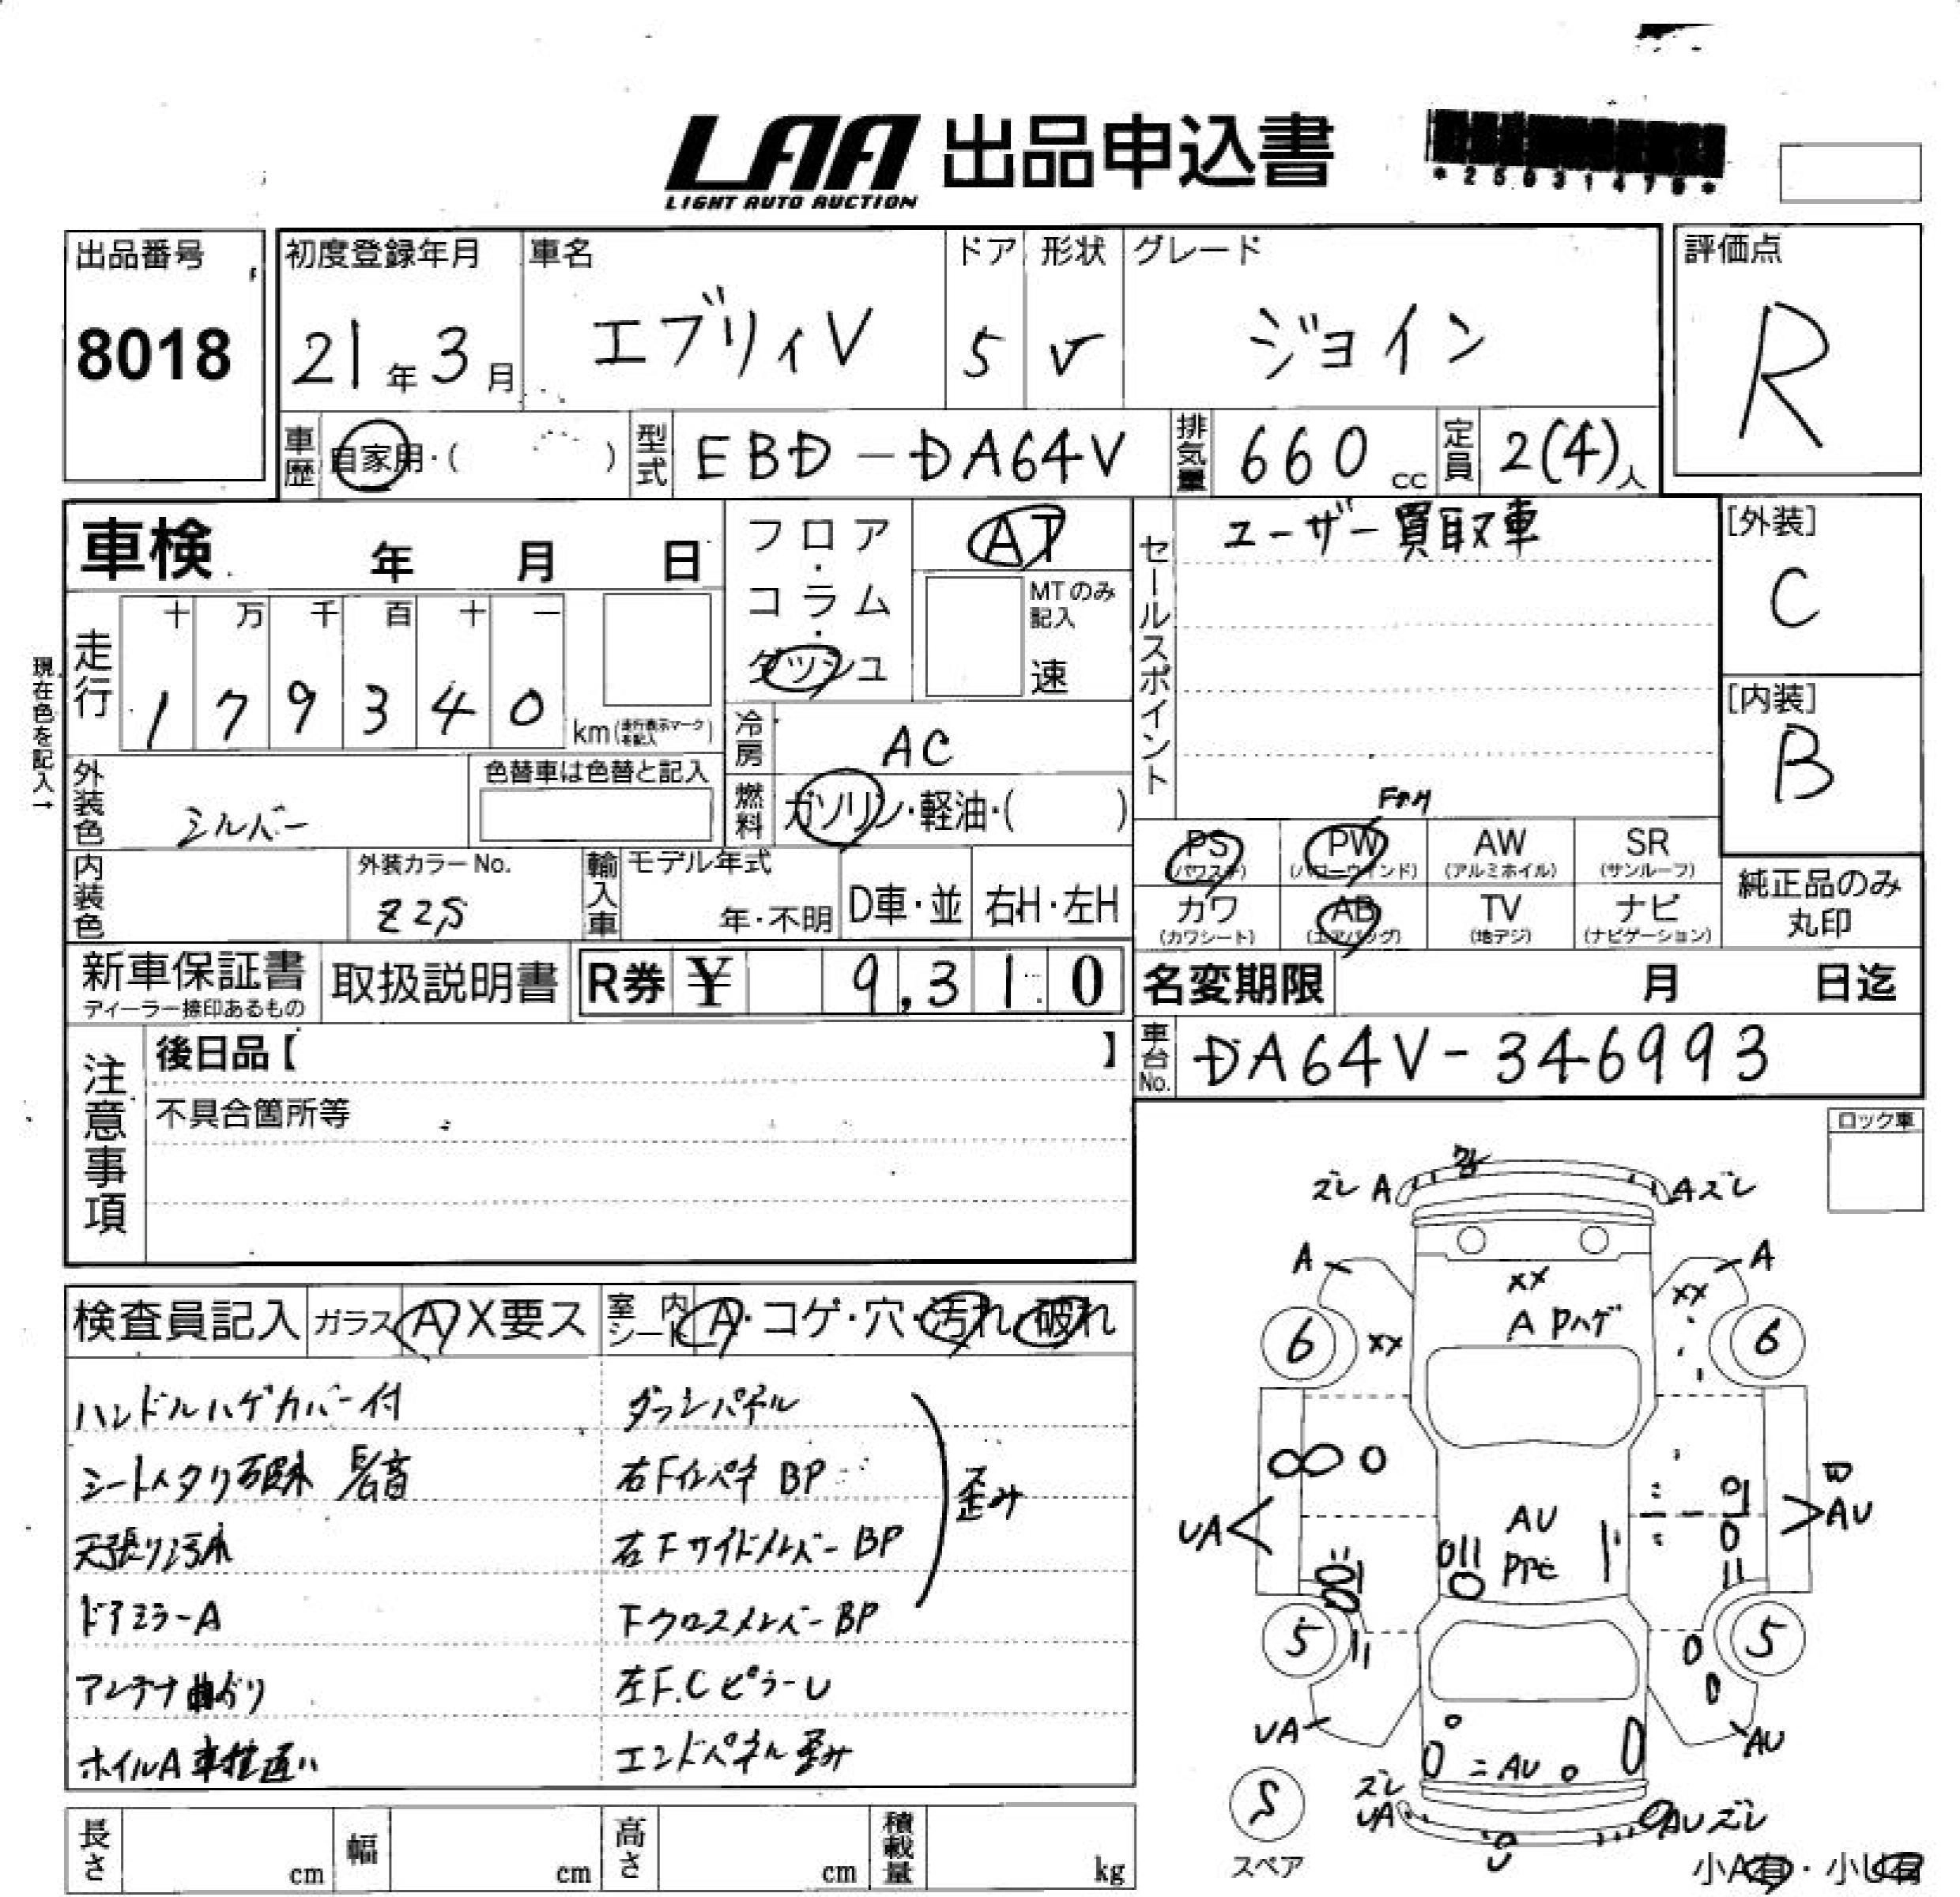 LAA 出品申込書
LIGHT AUTO AUCTION
出品番号
8018
初度登録年月
21年3月
車名
エブリィV
ドア
5
形状
V
グレード
ジョイン
評価点
R
車歴
自家用・( )
型式
EBD-DA64V
排気量
660 cc
定員
2(4)人
車検 年 月 日
フロア・コラム・ダッシュ
AT
MTのみ記入
速
セールスポイント
ユーザー買取車
[外装]
C
[内装]
B
現在色を記入→
走行
十 万 千 百 十 一
1 7 9 3 4 0
km(走行表示マークを記入)
冷房
AC
燃料
ガソリン・軽油・( )
外装色
シルバー
色替車は色替と記入
内装色
外装カラーNo.
Z2S
輸入車
モデル年式
年・不明
D車・並
右H・左H
PS
(パワステ)
PW
(パワーウインド)
AW
(アルミホイル)
SR
(サンルーフ)
カワ
(カワシート)
AB
(エアバッグ)
TV
(地デジ)
ナビ
(ナビゲーション)
純正品のみ
丸印
新車保証書
ディーラー捺印あるもの
取扱説明書
R券 ¥ 9,310
名変期限 月 日迄
車台No.
DA64V-346993
注意事項
後日品【 】
不具合箇所等
ロック車
検査員記入
ガラス A X要ス
室内シート A・コゲ・穴・汚れ 破れ
ハンドルハゲカバー付
ダッシパネル
右Fインパネ BP
天張り汚れ
右Fサイドメンバー BP
ドアミラーA
Fクロスメンバー BP
歪み
アンテナ曲がり
左F.CピラーU
ホイルA 車種違い
エンドパネル歪み
ズレ A
A ズレ
A
A
XX
XX
A Pハゲ
6
XX
6
UA
AU
AU
5
5
UA
AU
AU
ズレ
UA
AU ズレ
S
スペア
小A有・小U有
長さ cm
幅 cm
高さ cm
積載量 kg